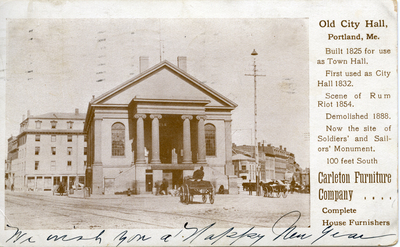 Old City Hall,
Portland, Me.
Built 1825 for use
as Town Hall.
First used as City
Hall 1832.
Scene of Rum
Riot 1854.
Demolished 1888.
Now the site of
Soldiers' and Sail-
ors' Monument,
100 feet South
Carleton Furniture
Company ....
Complete
House Furnishers
We wish you a Happy New Year